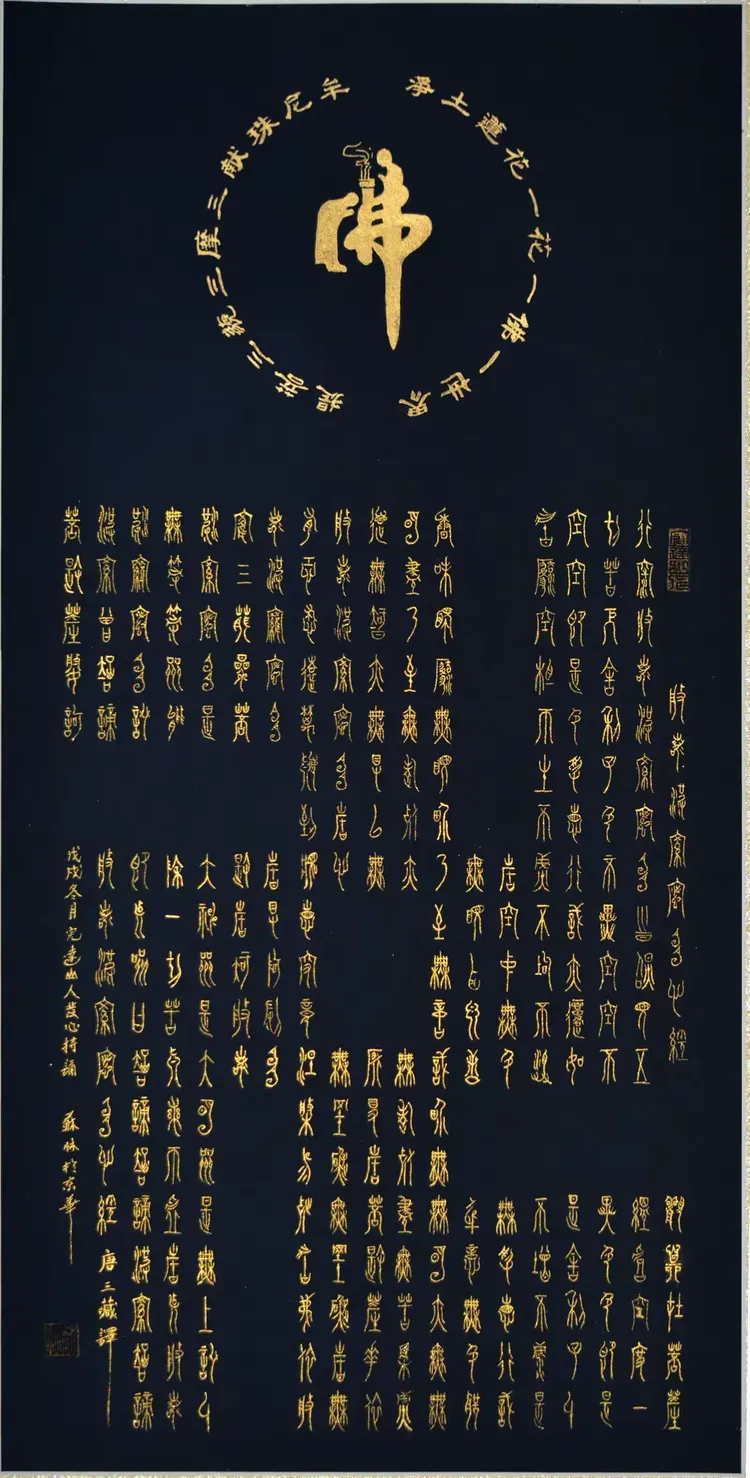 淨土蓮花一花一佛一世界
牟尼珠献三摩三藐三菩提
佛
般若波羅蜜多心經
觀自在菩薩
行深般若波羅蜜多時照見五蘊皆空度一
切苦厄舍利子色不異空空不異色色即是
空空即是色受想行識亦復如是舍利子是
諸法空相不生不滅不垢不淨不增不減是
故空中無色無受想行識
無眼耳鼻舌身意無色聲
香味觸法無眼界乃至無意識界無無明亦無無
明盡乃至無老死亦無老死盡無苦集滅
道無智亦無得以無所得故菩提薩埵依
般若波羅蜜多故心無罣礙無罣礙故無
有恐怖遠離顛倒夢想究竟涅槃三世諸佛依般
若波羅蜜多故得阿耨多
羅三藐三菩提故知般若
波羅蜜多是大神咒是大明咒是無上咒是
無等等咒能除一切苦真實不虛故說般若
波羅蜜多咒即說咒曰揭諦揭諦波羅揭諦
波羅僧揭諦
菩提薩婆訶
般若波羅蜜多心經 唐三藏譯
戊戌冬月完達山人發心持誦 蘇林於京華